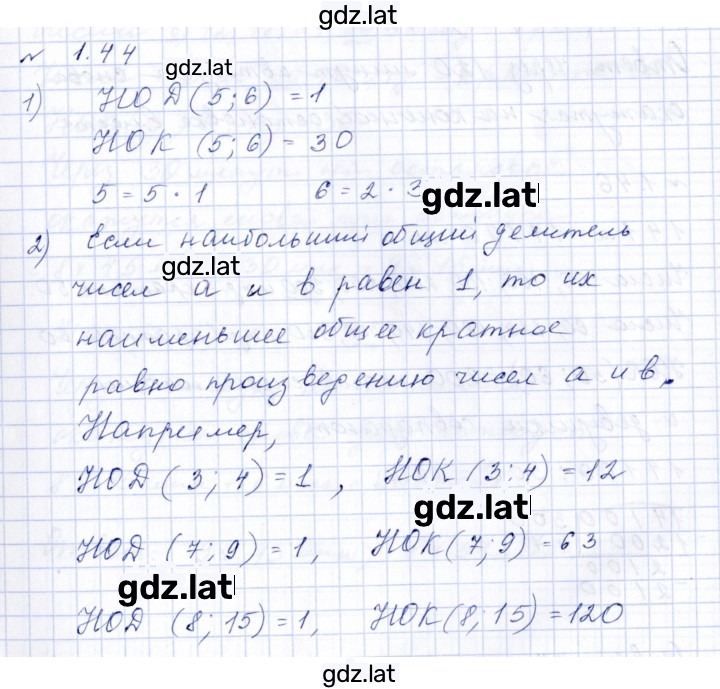 gdz.lat
№ 1.44
gdz.lat
1) НОД (5; 6) = 1
НОК (5; 6) = 30
5 = 5 · 1 6 = 2 · 3
gdz.lat
2) Если наибольший общий делитель
gdz.lat
чисел а и в равен 1, то их
наименьшее общее кратное
равно произведению чисел а и в.
Например,
НОД (3; 4) = 1, НОК (3; 4) = 12
gdz.lat
НОД (7; 9) = 1, НОК (7; 9) = 63
gdz.lat
НОД (8; 15) = 1, НОК (8; 15) = 120
gdz.lat